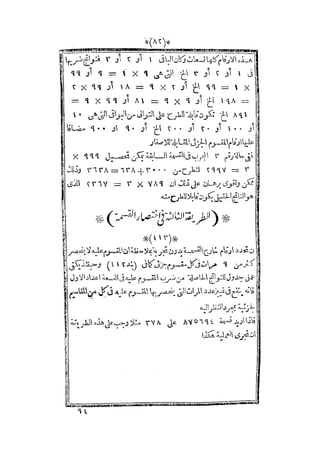 *(٨٢)*
هذه الارقام كلها تسعات وكان الباقى ١ أو ٢ أو ٣ فنواتج ضربها
فى ١ أو ٢ أو ٣ الخ التى هى ٩ × ١ = ٩ أو ٩٩
× ١ = ٩٩ الخ أو ٢ × ٩ = ١٨ أو ٩٩ × ٢
= ١٩٨ الخ أو ٩ × ٩ = ٨١ أو ٩٩ × ٩ =
٨٩١ الخ تكون قابلة للطرح على التوالى من البواقى التى هى ١٠
أو ١٠٠ أو ٢٠ أو ٢٠٠ الخ أو ٩٠ او ٩٠٠ مضافا
عليها أرقام المقسوم الجزئى المقابلة للاصفار
ففى حالة رقم ٣ المجرب فى القسمة السابقة يمكن تحصيل ٩٩٩ ×
٣ = ٢٩٩٧ للطرح من ٣٠٠٠ + ٦٣٨ = ٣٦٣٨ وذلك
ممكن وأقوى برهان على ذلك ان ٧٨٩ × ٣ = ٢٣٦٧ الذى
هو الناتج الحقيقى يكون قابلا للطرح منه
*(الطريقة الثالثة فى اختصار القسمة)*
*(١١٣)*
ان تعدد أرقام خارج القسمة بدون تجربة بملاحظة ان المقسوم عليه لا ينحصر
أكثر من ٩ مرات فى كل مقسوم جزئى كما فى (بند ١١٢) وحينئذ يكفى
عمل جدول للنواتج الحاصلة من ضرب المقسوم عليه فى التسعة اعداد الاول
فانه ينتفع فى تمييز عدد المرات التى ينحصر بها المقسوم عليه فى كل من المقاسيم
الجزئية بمجرد النظر اليه
فاذا اريد قسمة ٨٧٥٦٩٤ على ٣٧٨ مثلا وجب على هذه الطريقة
ان تجرى العملية هكذا
٩٤